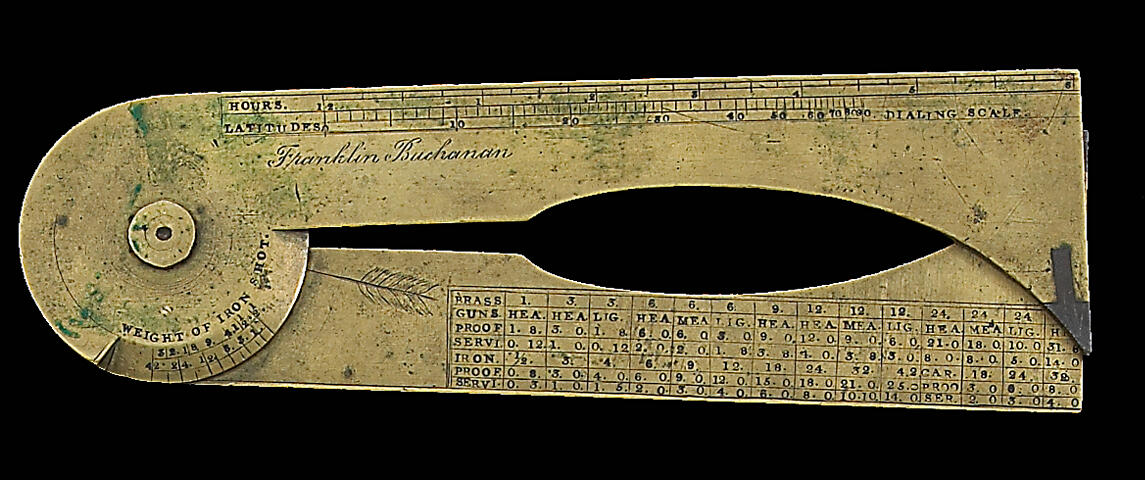 HOURS. 12 1 2 3 4 5 6
LATITUDES 0 10 20 30 40 50 60 70 80 90. DIALING SCALE.
Franklin Buchanan
WEIGHT OF IRON SHOT.
42. 24. 12
BRASS 1. 3. 3. 6. 6. 6. 9. 12. 12. 12. 24. 24. 24
GUNS. HEA. HEA LIG. HEA. MEA LIG. HEA. HEA. MEA. LIG. HEA. MEA LIG.
PROOF 1. 8. 3. 0. 1. 8. 6. 0 6. 0. 3. 0. 9. 0. 12. 0. 9. 0. 6. 0. 21. 0 18. 0. 10. 0. 31.
SERVI. 0. 12. 1. 0. 0. 12 2. 0. 2. 0. 1. 8 3. 8. 4. 0. 3. 8. 3. 0. 8. 0. 8. 0. 5. 0. 14. 0
IRON. ½. 3. 4. 6. 9. 12. 18. 24. 32. 42 CAR. 18. 24. 32.
PROOF 0. 8. 3. 0. 4. 0. 6. 0. 9. 0. 12. 0. 15. 0. 18. 0 21. 0. 25. 0 PROO 3. 0. 6. 0 8. 0
SERVI. 0. 3. 1. 0. 1. 5. 2. 0. 3. 0. 4. 0. 6. 0. 8. 0. 10. 10. 14. 0 SER. 2. 0. 3. 0 4. 0.